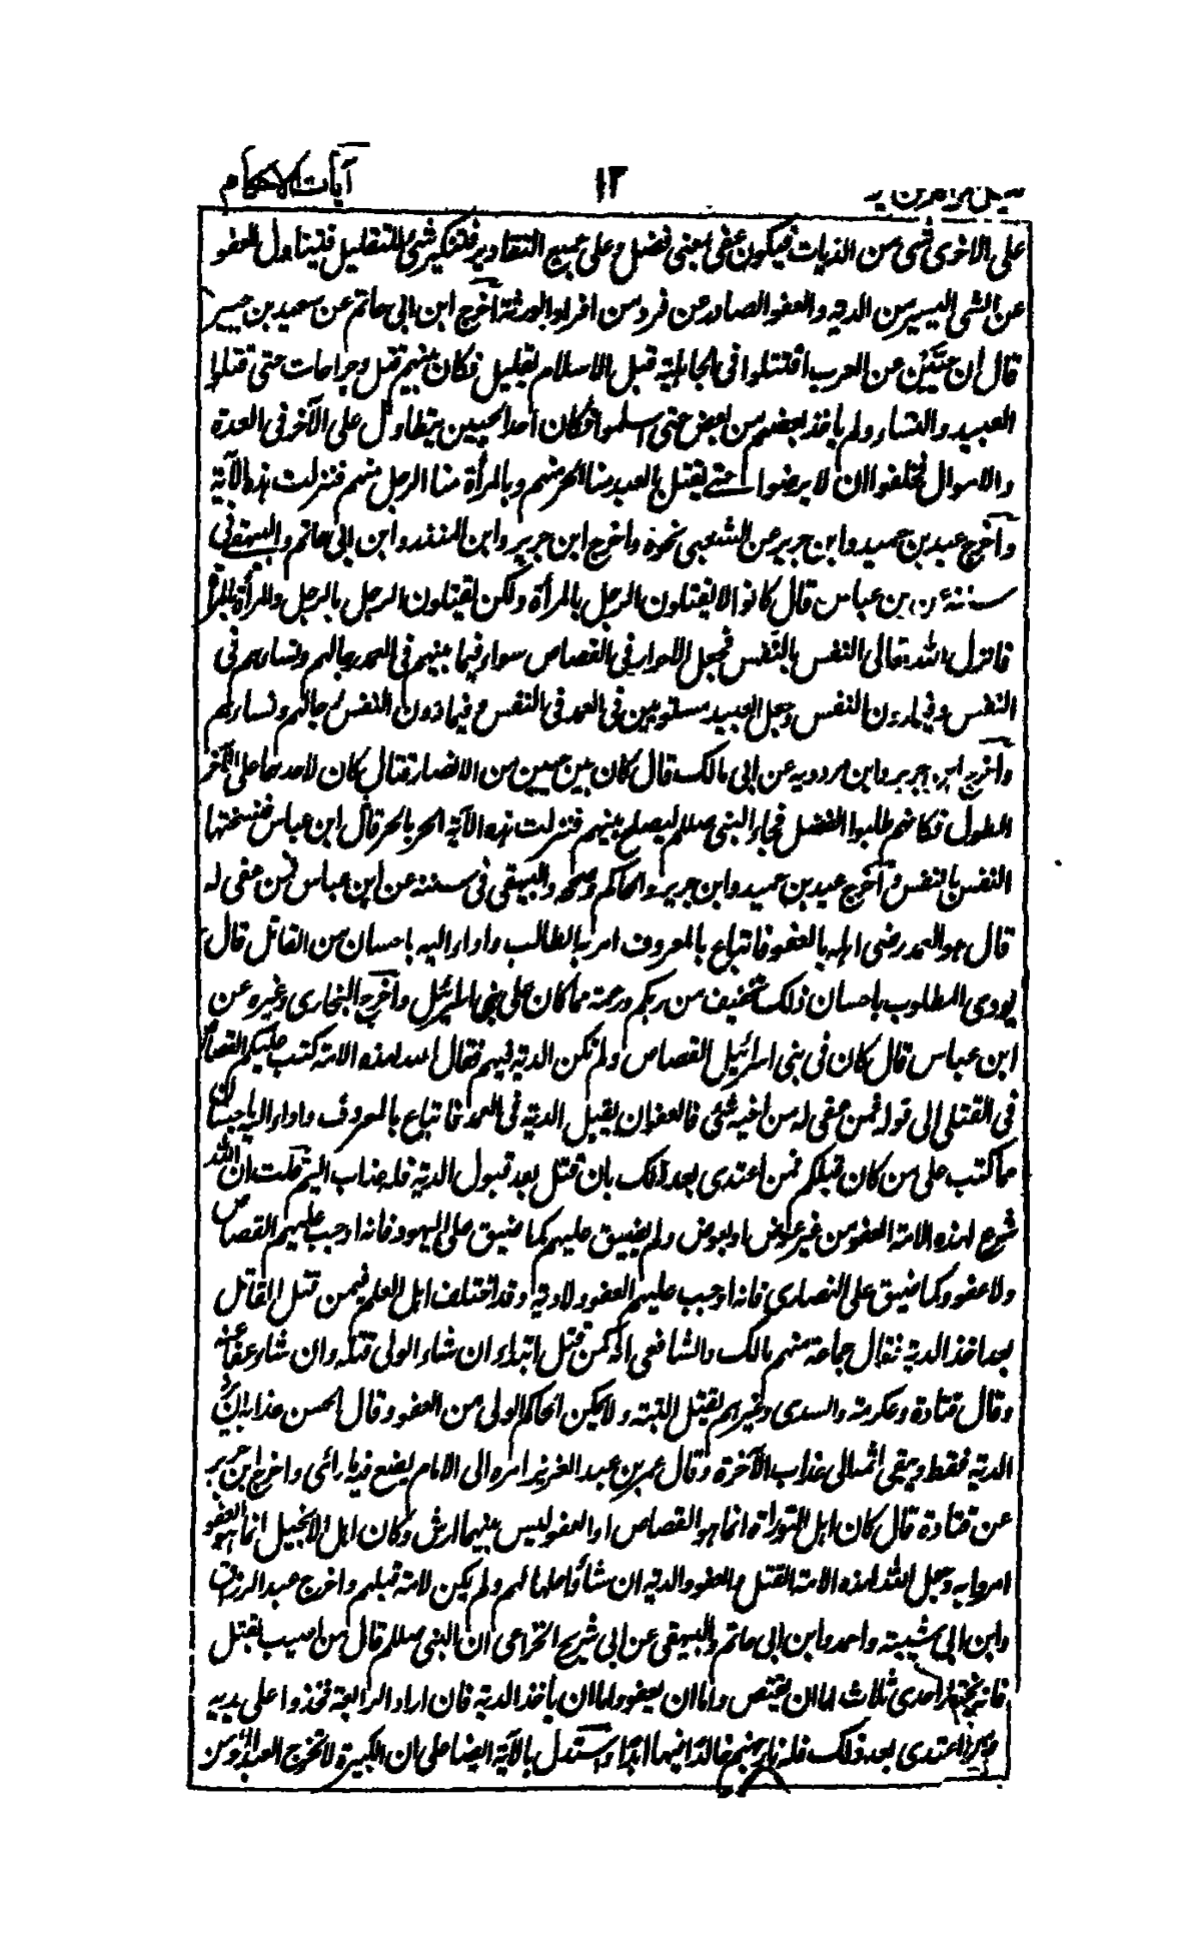 آيات الاحكام
١٢
على الاخرى شىء من الديات فيكون عفى بمعنى فضل وعلى جميع التقادير فتنكير شىء للتقليل فيتناول العفو
عن الشى اليسير من الدية والعفو الصادر عن فرد من افراد الورثة اخرج ابن ابى حاتم عن سعيد بن جبير
قال ان حيَّيْن من العرب اقتتلوا فى الجاهلية قبل الاسلام بقليل فكان بينهم قتل وجراحات حتى قتلوا
العبيد والنساء ولم ياخذ بعضهم من بعض حتى اسلموا فكان احد الحيين يتطاول على الآخر فى العدة
والاموال فحلفوا ان لا يرضوا حتى يقتل بالعبد منا الحر منهم وبالمرأة منا الرجل منهم فنزلت هذه الآية
واخرج عبد بن حميد وابن جرير عن الشعبى نحوه واخرج ابن جرير وابن المنذر وابن ابى حاتم والبيهقى فى
سننه عن ابن عباس قال كانوا لا يقتلون الرجل بالمرأة ولكن يقتلون الرجل بالرجل والمرأة بالمرأة
فانزل الله تعالى النفس بالنفس فجعل الاحرار فى القصاص سواء فيما بينهم فى العمد رجالهم ونساءهم فى
النفس وفيما دون النفس وجعل العبيد مستويين فى العمد فى النفس وفيما دون النفس رجالهم ونساءهم
واخرج ابن جرير وابن مردويه عن ابى مالك قال كان بين حيين من الانصار قتال كان لاحدهما على الآخر
الطول فكانهم طلبوا الفضل فجاء النبى صللم ليصلح بينهم فنزلت هذه الآية الحر بالحر قال ابن عباس فنسختها
النفس بالنفس واخرج عبد بن حميد وابن جرير والحاكم وصححه والبيهقى فى سننه عن ابن عباس فمن عفى له
قال هو العمد رضى اهله بالعفو فاتباع بالمعروف امر به الطالب واداء اليه باحسان من القاتل قال
يودى المطلوب باحسان ذلك تخفيف من ربكم ورحمة مما كان على بنى اسرائيل واخرج البخارى وغيره عن
ابن عباس قال كان فى بنى اسرائيل القصاص ولم تكن الدية فيهم فقال الله لهذه الامة كتب عليكم القصاص
فى القتلى الى قوله فمن عفى له من اخيه شئى فالعفو ان يقبل الدية فى العمد فاتباع بالمعروف واداء اليه باحسان
مما كتب على من كان قبلكم فمن اعتدى بعد ذلك بان قتل بعد قبول الدية فله عذاب اليم قلت ان الله
شرع لهذه الامة العفو من غير عوض او بعوض ولم يضيق عليهم كما ضيق على اليهود فانه اوجب عليهم القصاص
ولا عفو وكما ضيق على النصارى فانه اوجب عليهم العفو ولا دية وقد اختلف اهل العلم فيمن قتل القاتل
بعد اخذ الدية فقال جماعة منهم مالك والشافعى انه كمن قتل ابتداء ان شاء الولى قتله وان شاء عفا عنه
وقال قتادة وعكرمة والسدى وغيرهم يقتل البتة ولا يمكن الحاكم الولى من العفو وقال الحسن عذابه ان يرد
الدية فقط ويبقى اثمه الى عذاب الآخرة وقال عمر بن عبد العزيز امره الى الامام يصنع فيه ما رائى واخرج ابن جرير
عن قتادة قال كان اهل التوراة انما هو القصاص او العفو ليس بينهما ارش وكان اهل الانجيل انما هو العفو
امروا به وجعل الله لهذه الامة القتل والعفو والدية ان شاؤا احلها لهم ولم يكن لامة قبلهم واخرج عبد الرزاق
وابن ابى شيبة واحمد وابن ابى حاتم والبيهقى عن ابى شريح الخزاعى ان النبى صللم قال من اصيب بقتل
فانه يختار احدى ثلاث اما ان يقتص واما ان يعفو واما ان ياخذ الدية فان اراد الرابعة فخذوا على يديه
اعتدى بعد ذلك فله نار جهنم خالدًا فيها ابدًا ويستدل بالآية ايضا على ان الكبيرة لا تخرج العبد المؤمن